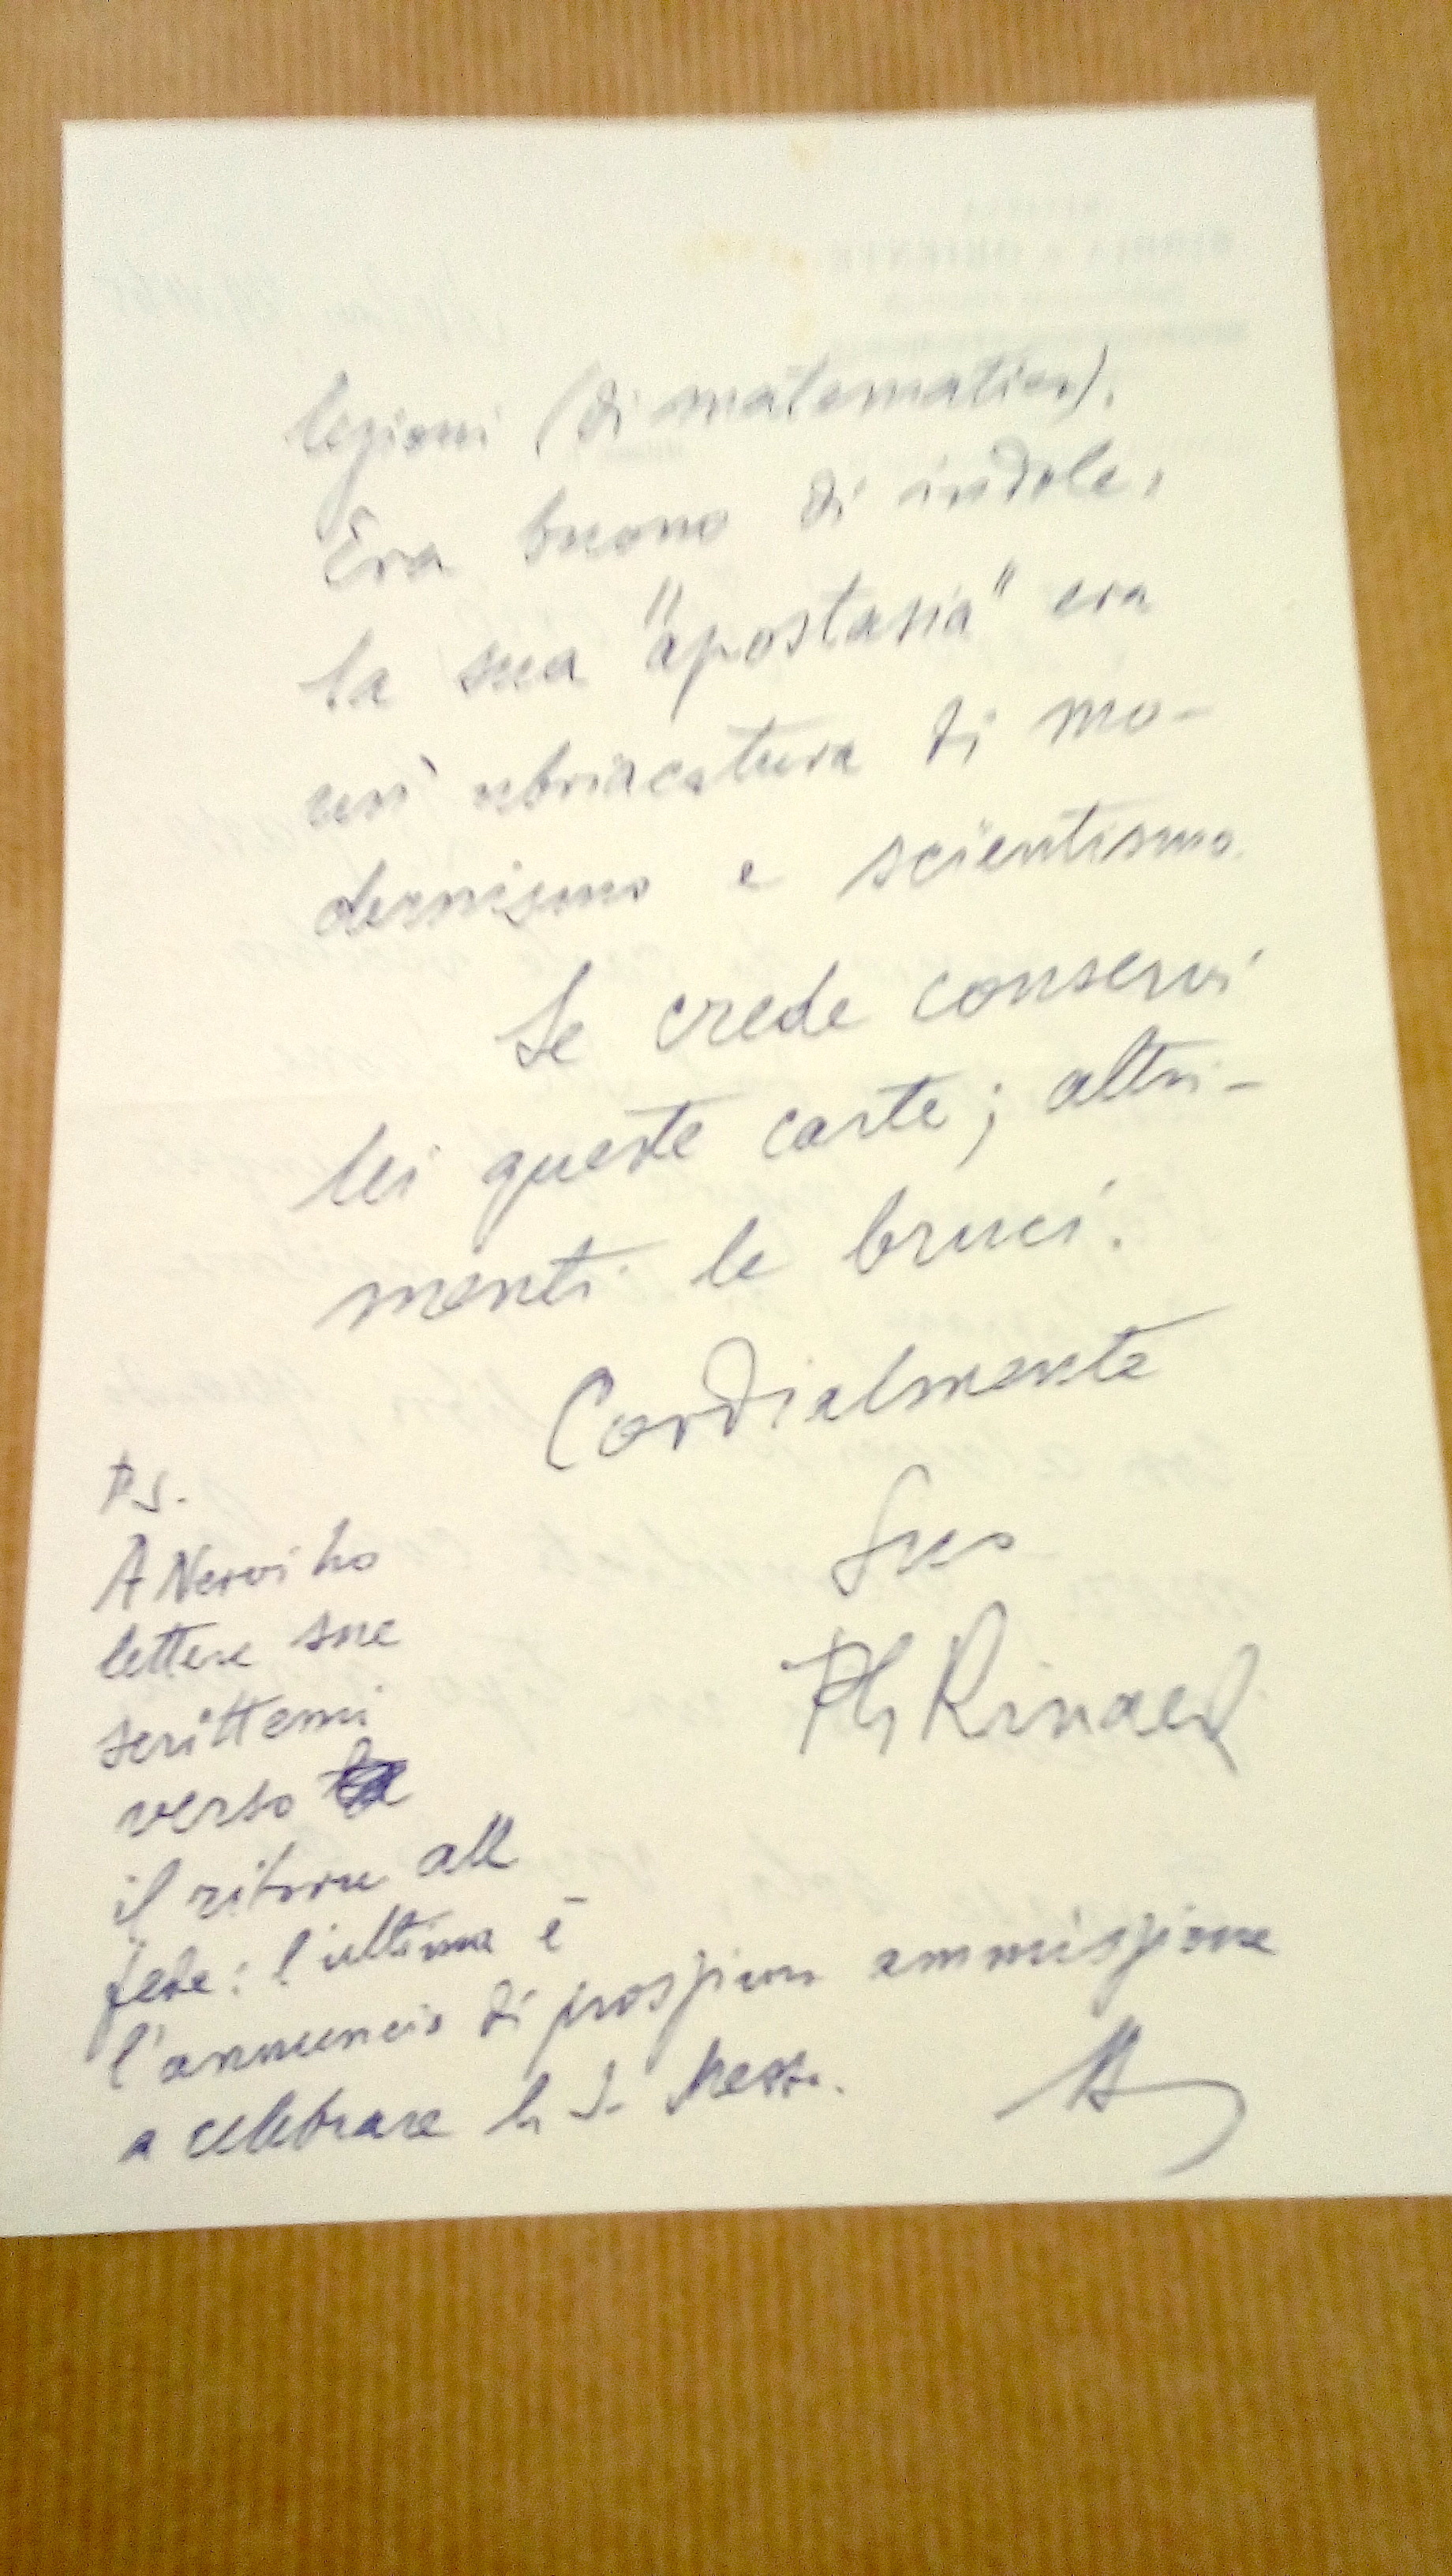 lezioni (di matematica).
Era buono di indole,
la sua "apostasia" era
ubriacatura di mo-
dernismo e scientismo.
Se crede conservi
lei queste carte; altri-
menti le bruci.
Cordialmente
Suo
P.S.
A Nervi ho
lettere sue
scrittemi
verso
il ritorno alla
fede: l'ultima è
l'annuncio di prossima ammissione
a celebrare la S. Messa.